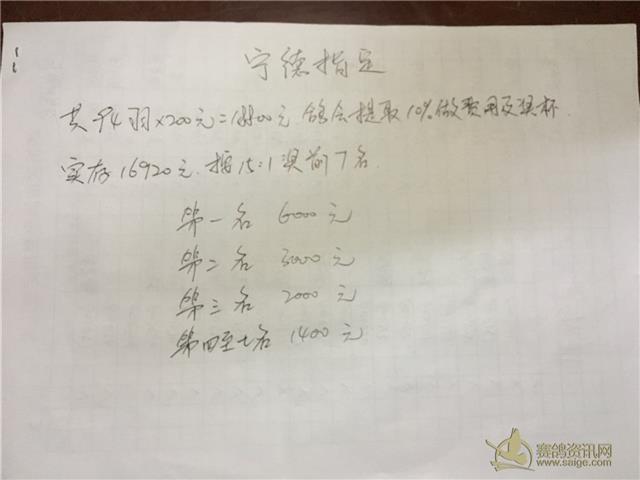 宁德指定
共94羽×200元=18800元 鸽会提取10%做费用及奖杯
实存16920元.按15:1奖前7名
第一名 6000元
第二名 3000元
第三名 2000元
第四至七名 1400元
赛鸽资讯网
www.saige.com